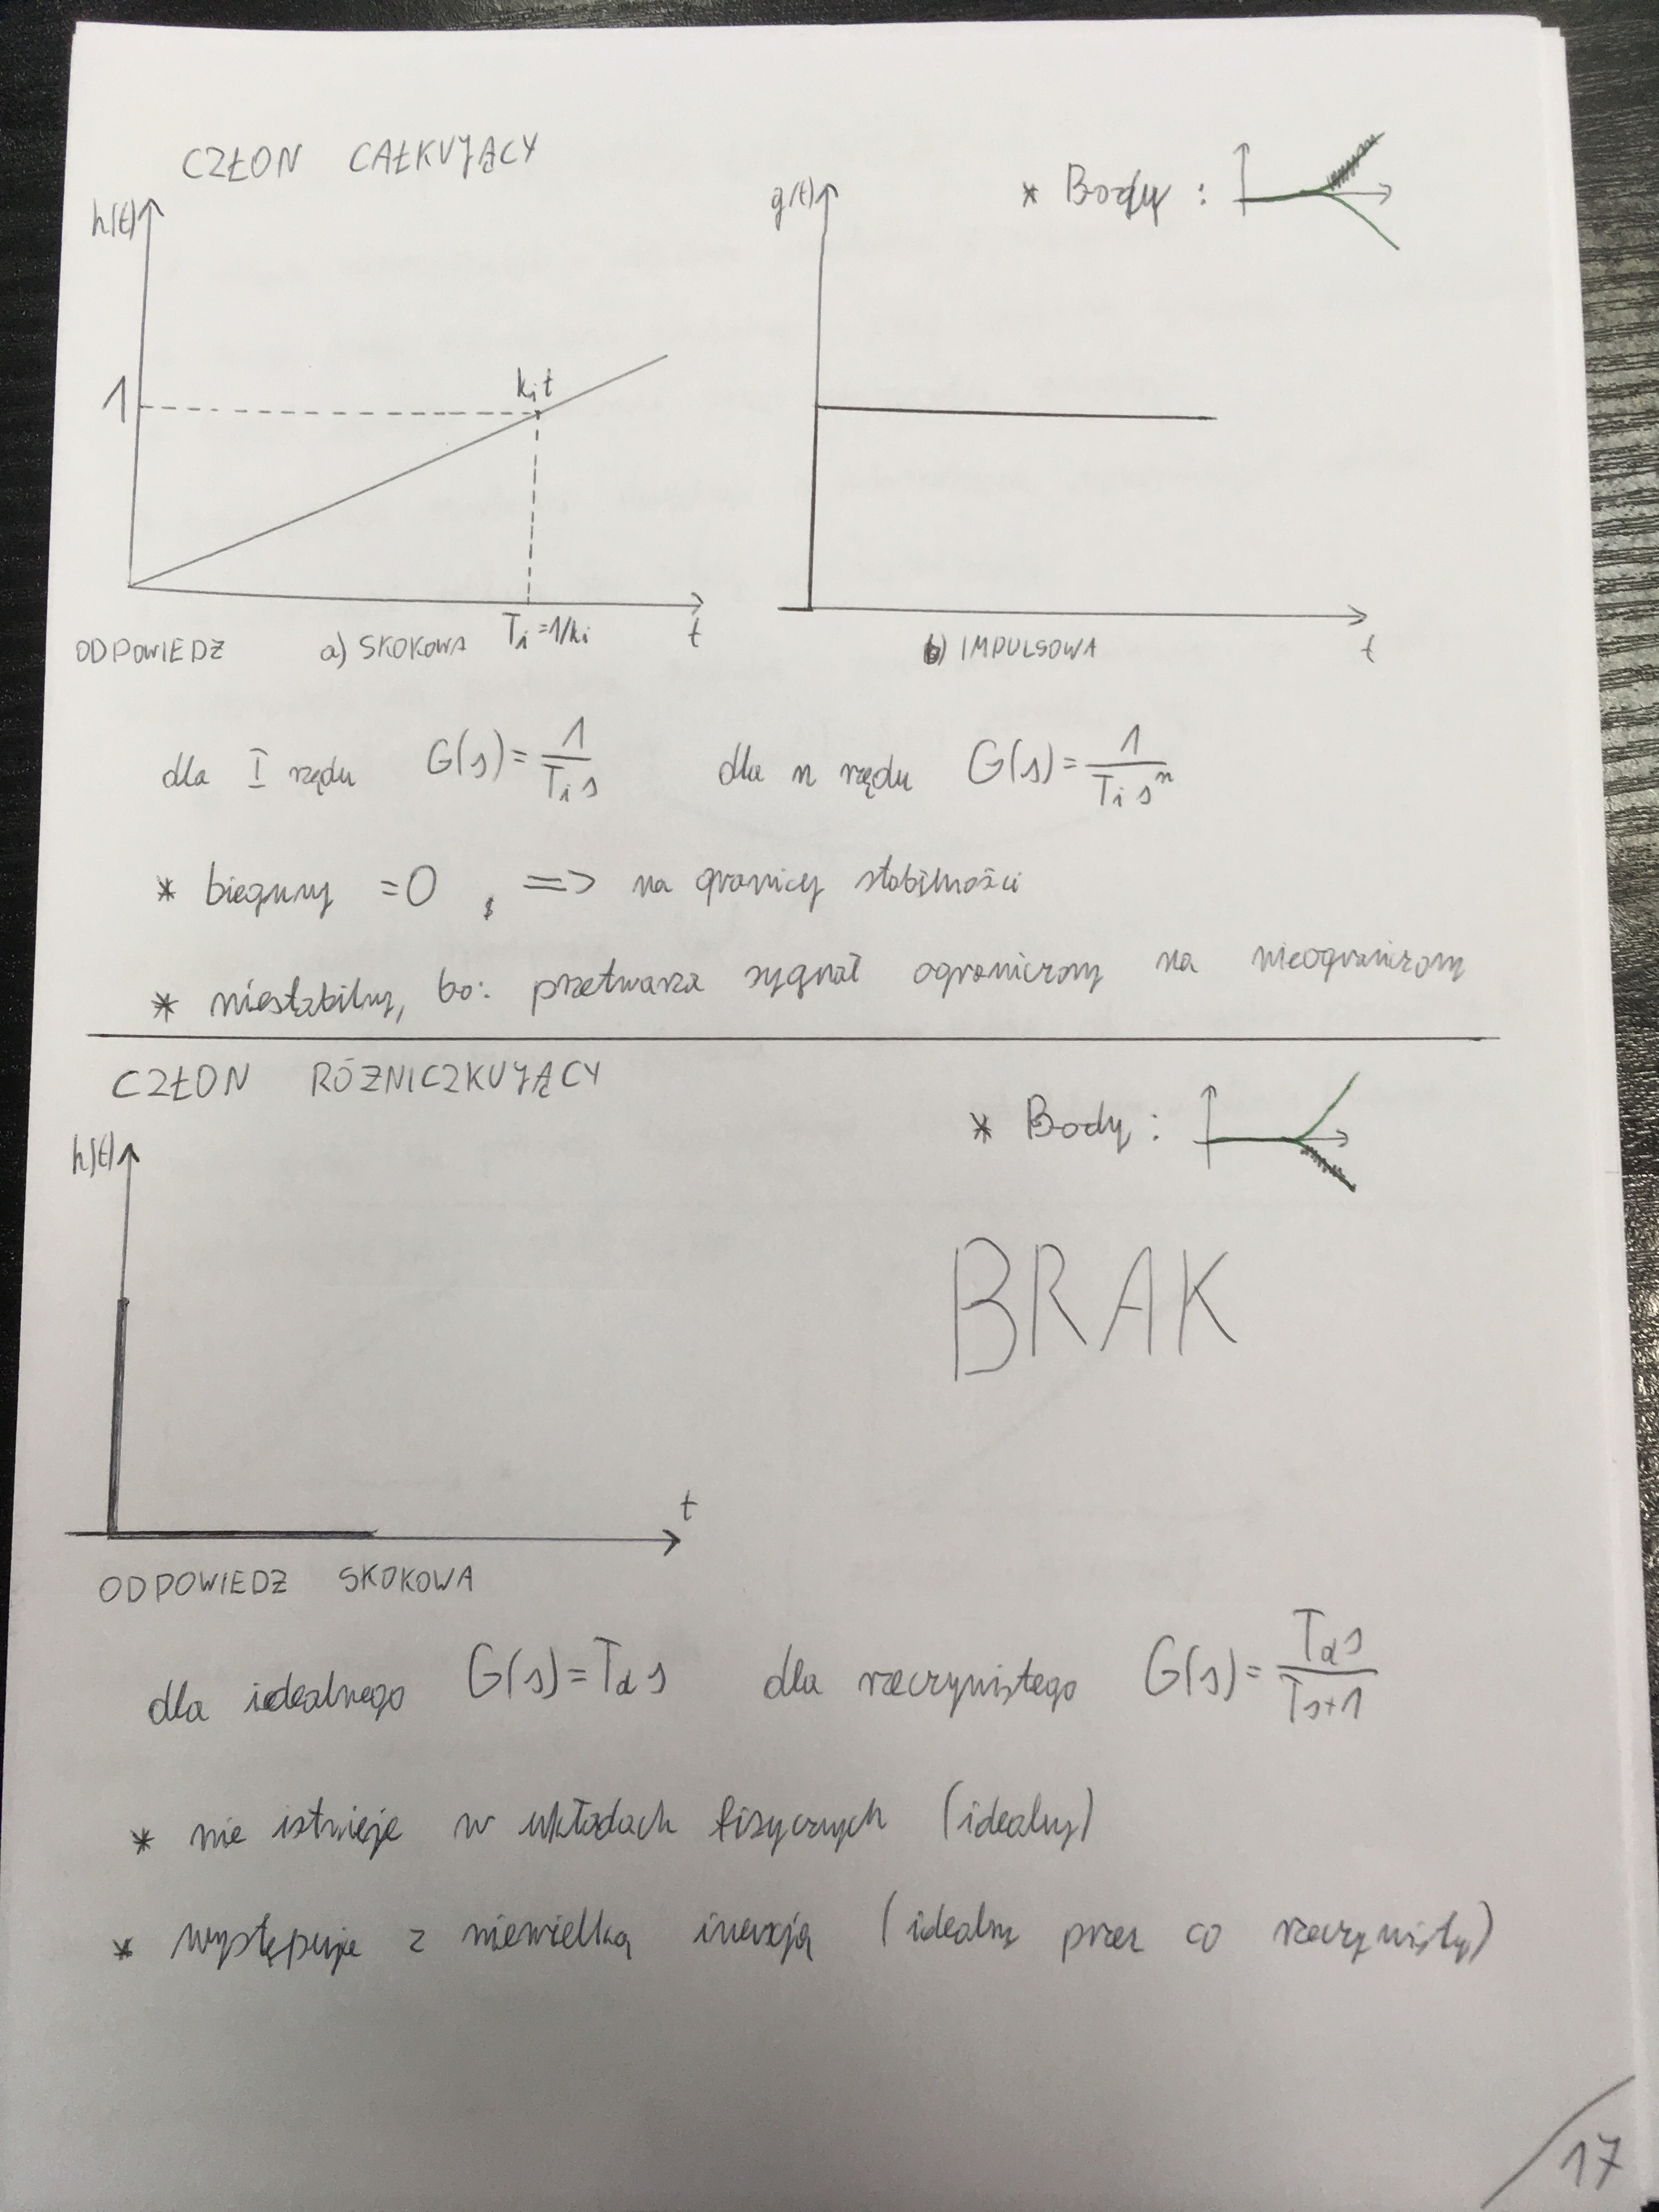 CZŁON CAŁKUJĄCY
* Body :
h(t)
g(t)
1
kit
ODPOWIEDŹ a) SKOKOWA Ti=1/ki t
b) IMPULSOWA t
dla I rzędu G(s)=1/Tis dla n rzędu G(s)=1/Tisⁿ
* bieguny =0 , => na granicy stabilności
* niestabilny, bo: przetwarza sygnał ograniczony na nieograniczony
CZŁON RÓŻNICZKUJĄCY
* Body :
h(t)
BRAK
t
ODPOWIEDŹ SKOKOWA
dla idealnego G(s)=Tds dla rzeczywistego G(s)=Tds/Ts+1
* nie istnieje w układach fizycznych (idealny)
* występuje z niewielką inercją (idealny przez co rzeczywisty)
17